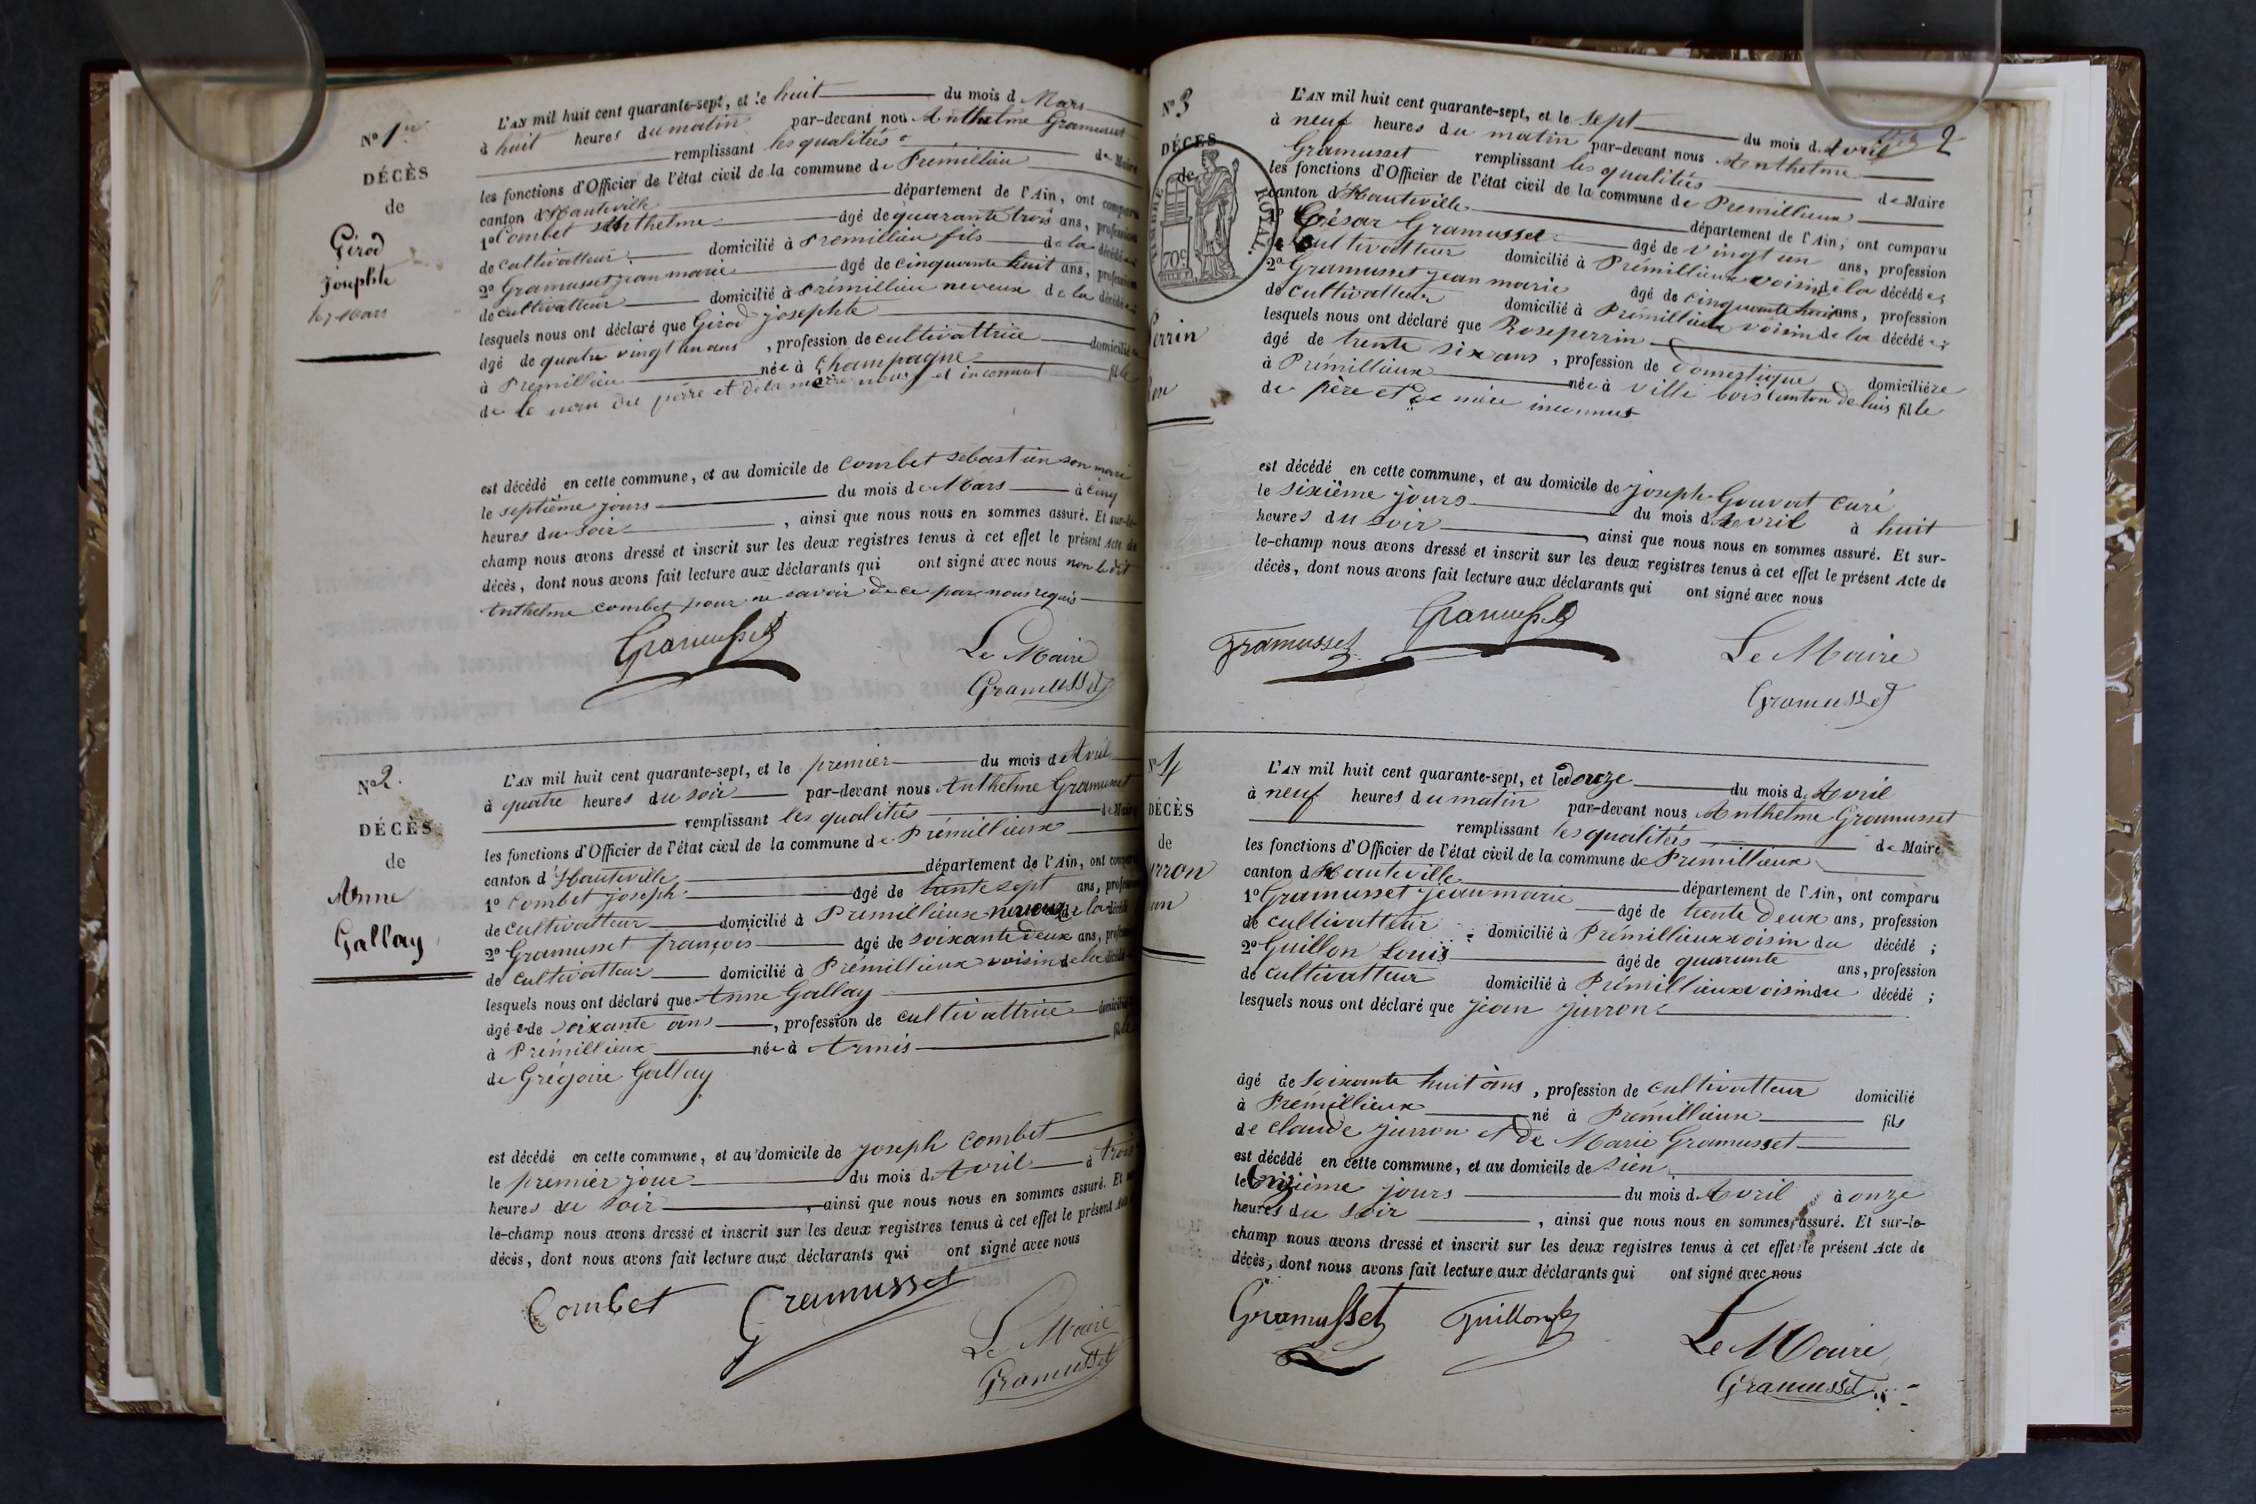 N° 1er
DÉCÈS
de
Girod
josephte
le 7 Mars
L'AN mil huit cent quarante-sept, et le huit du mois d Mars
à huit heures du matin par-devant nou Anthelme Gramusset
remplissant les qualitées de Maire
les fonctions d'Officier de l'état civil de la commune de Prémillieu
canton d'Hauteville département de l'Ain, ont comparu
1° Combet Anthelme âgé de quarante trois ans, profession
de cultivatteur domicilié à Premillieu fils de la décédée
2° Gramusset jean marie âgé de cinquante huit ans, profession
de cultivatteur domicilié à Prémillieu neveux de la décédée
lesquels nous ont déclaré que Girod josephte
âgé de quatre vingt un ans, profession de cultivattrice domicilié
à Prémillieu née à Champagne fille
de le nom du père et de la mère nous et inconnut
est décédé en cette commune, et au domicile de Combet sebastien son marie
le septième jours du mois de Mars à cinq
heures du soir, ainsi que nous nous en sommes assuré. Et sur-le-
champ nous avons dressé et inscrit sur les deux registres tenus à cet effet le présent Acte de
décès, dont nous avons fait lecture aux déclarants qui ont signé avec nous non ledit
Anthelme combet pour ne savoir de ce par nous requis
Gramusset
Le Maire
Gramusset
N° 2.
DÉCÈS
de
Anne
Gallay
L'AN mil huit cent quarante-sept, et le premier du mois d Avril
à quatre heures du soir par-devant nous Anthelme Gramusset
remplissant les qualitées de Maire
les fonctions d'Officier de l'état civil de la commune de Prémillieux
canton d'Hauteville département de l'Ain, ont comparu
1° Combet joseph âgé de trente sept ans, profession
de cultivatteur domicilié à Premillieux neveux de la décédé
2° Gramusset françois âgé de soixante deux ans, profession
de cultivatteur domicilié à Prémillieux voisin de la décédé
lesquels nous ont déclaré que Anne Gallay
âgé e de soixante ans, profession de cultivattrice domicilié
à Prémillieux née à Armis fille
de Grégoire Gallay
est décédé en cette commune, et au domicile de joseph Combet
le premier jour du mois d Avril à trois
heures du soir, ainsi que nous nous en sommes assuré. Et sur
le-champ nous avons dressé et inscrit sur les deux registres tenus à cet effet le présent Acte
décès, dont nous avons fait lecture aux déclarants qui ont signé avec nous
Combet Gramusset
Le Maire
Gramusset
2
N° 3
DÉCÈS
de
TIMBRE ROYAL.
70c
Perrin
L'AN mil huit cent quarante-sept, et le sept du mois d Avril
à neuf heures du matin par-devant nous Anthelme
Gramusset remplissant les qualitées de Maire
les fonctions d'Officier de l'état civil de la commune de Premillieux
canton d'Hauteville département de l'Ain, ont comparu
1° César Gramusset âgé de vingt un ans, profession
de Cultivatteur domicilié à Prémillieux voisin de la décédé e;
2° Gramusset jean marie âgé de cinquante huit ans, profession
de cultivatteur domicilié à Prémillieux voisin de la décédé e;
lesquels nous ont déclaré que Rose perrin
âgé de trente six ans, profession de Domestique domiciliére
à Prémillieux née à Ville bois Canton de luis fille
de père et de mère inconnus
est décédé en cette commune, et au domicile de joseph Gouvat Curé
le sixième jours du mois d Avril à huit
heures du soir, ainsi que nous nous en sommes assuré. Et sur-
le-champ nous avons dressé et inscrit sur les deux registres tenus à cet effet le présent Acte de
décès, dont nous avons fait lecture aux déclarants qui ont signé avec nous
Gramusset Gramusset
Le Maire
Gramusset
N° 4
DÉCÈS
de
L'AN mil huit cent quarante-sept, et le douze du mois d Avril
à neuf heures du matin par-devant nous Anthelme Gramusset
remplissant les qualitées de Maire
les fonctions d'Officier de l'état civil de la commune de Prémillieux
canton d'Hauteville département de l'Ain, ont comparu
1° Gramusset jean marie âgé de trente deux ans, profession
de cultivatteur domicilié à Prémillieux voisin du décédé ;
2° Guillon Louis âgé de quarante ans, profession
de cultivatteur domicilié à Prémillieux voisin du décédé ;
lesquels nous ont déclaré que jean jurron
âgé de soixante huit ans, profession de cultivatteur domicilié
à Prémillieux né à Prémillieux fils
de claude jurron et de Marie Gramusset
est décédé en cette commune, et au domicile de sien
le Onzième jours du mois d Avril à onze
heures du soir, ainsi que nous nous en sommes assuré. Et sur-le-
champ nous avons dressé et inscrit sur les deux registres tenus à cet effet le présent Acte de
décès, dont nous avons fait lecture aux déclarants qui ont signé avec nous
Gramusset Guillon
Le Maire
Gramusset